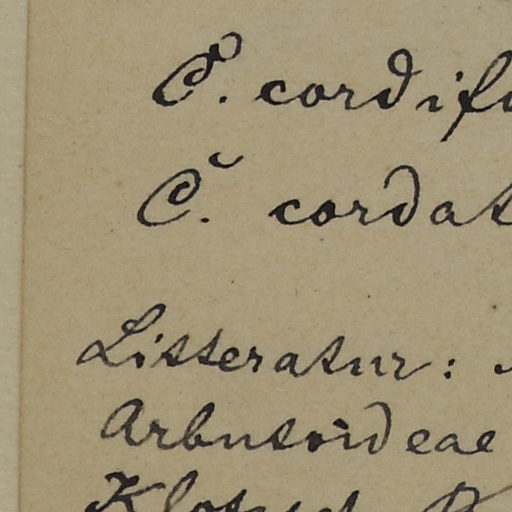 C. cordifo
C. cordat
Litteratur:
Arbutoideae
Klotzsch